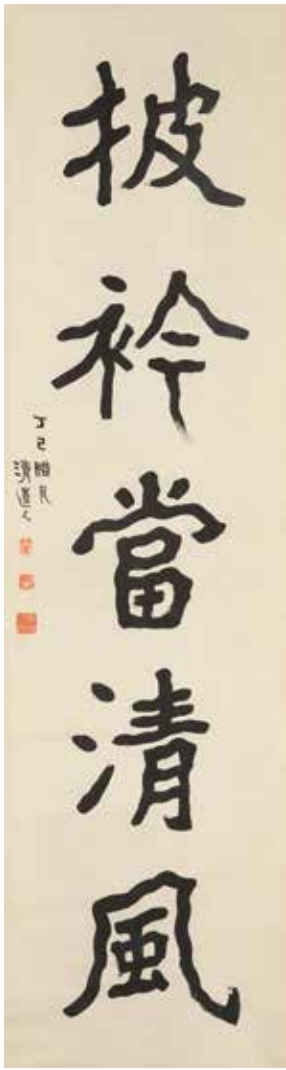 披衿當清風
丁巳臘月
清道人